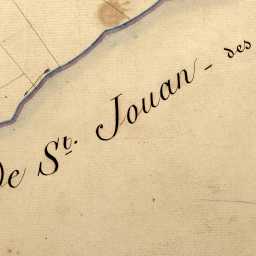 De St. Jouan - des